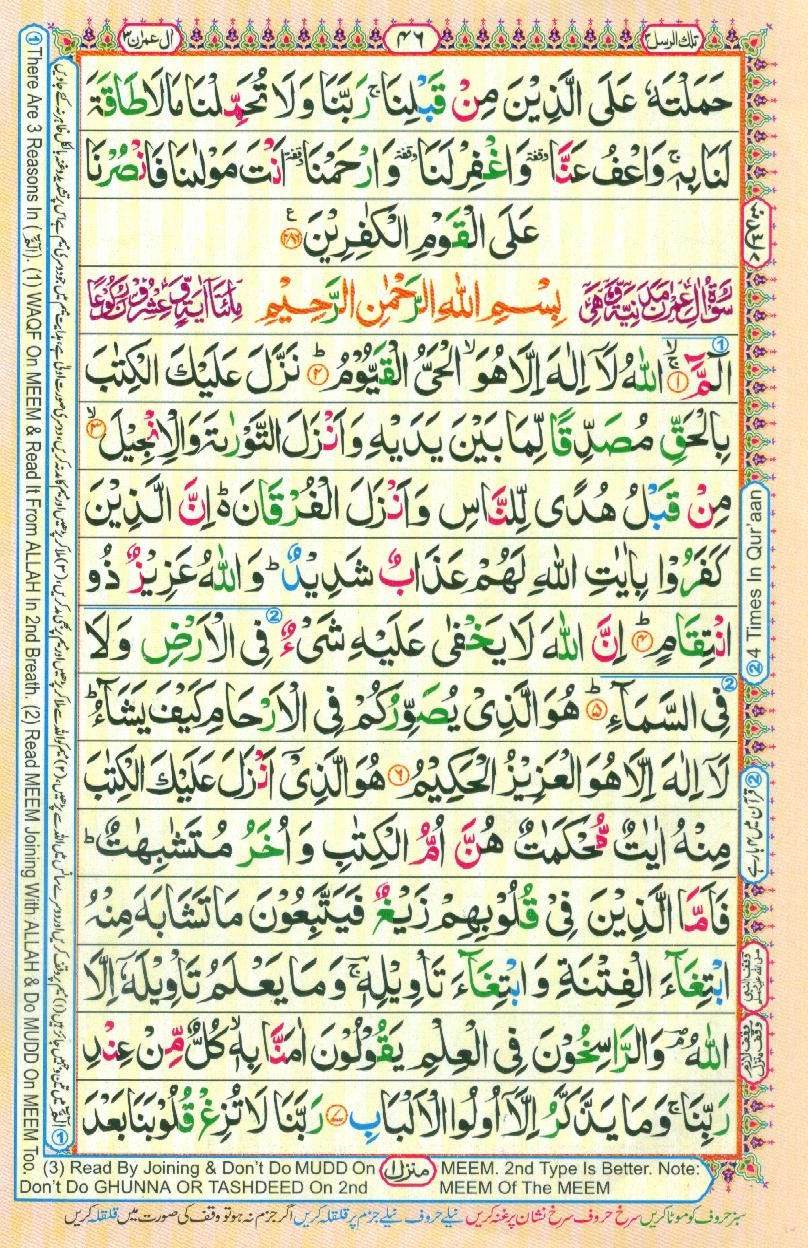 تلك الرسل ٣
٤٦
ال عمرٰن ٣
حَمَلْتَهٗ عَلَى الَّذِيْنَ مِنْ قَبْلِنَا ۚ رَبَّنَا وَلَا تُحَمِّلْنَا مَا لَا طَاقَةَ
لَنَا بِهٖ ۚ وَاعْفُ عَنَّا وقفة وَاغْفِرْ لَنَا وقفة وَارْحَمْنَا وقفة اَنْتَ مَوْلٰىنَا فَانْصُرْنَا
عَلَى الْقَوْمِ الْكٰفِرِيْنَ ﴿٢٨٦﴾ ع
سُوْرَةُ اٰلِ عِمْرٰنَ مَدَنِيَّةٌ وَّهِىَ بِسْمِ اللّٰهِ الرَّحْمٰنِ الرَّحِيْمِ مِائَتَا اٰيَةٍ وَّعِشْرُوْنَ رُكُوْعًا
الٓمَّٓ ۙ﴿١﴾ اللّٰهُ لَاۤ اِلٰهَ اِلَّا هُوَ ۙ الْحَىُّ الْقَيُّوْمُ ؕ﴿٢﴾ نَزَّلَ عَلَيْكَ الْكِتٰبَ
بِالْحَقِّ مُصَدِّقًا لِّمَا بَيْنَ يَدَيْهِ وَاَنْزَلَ التَّوْرٰىةَ وَالْاِنْجِيْلَ ۙ﴿٣﴾
مِنْ قَبْلُ هُدًى لِّلنَّاسِ وَاَنْزَلَ الْفُرْقَانَ ؕ اِنَّ الَّذِيْنَ
كَفَرُوْا بِاٰيٰتِ اللّٰهِ لَهُمْ عَذَابٌ شَدِيْدٌ ؕ وَاللّٰهُ عَزِيْزٌ ذُو
انْتِقَامٍ ؕ﴿٤﴾ اِنَّ اللّٰهَ لَا يَخْفٰى عَلَيْهِ شَىْءٌ فِى الْاَرْضِ وَلَا
فِى السَّمَآءِ ؕ﴿٥﴾ هُوَ الَّذِىْ يُصَوِّرُكُمْ فِى الْاَرْحَامِ كَيْفَ يَشَآءُ ؕ
لَاۤ اِلٰهَ اِلَّا هُوَ الْعَزِيْزُ الْحَكِيْمُ ﴿٦﴾ هُوَ الَّذِىْۤ اَنْزَلَ عَلَيْكَ الْكِتٰبَ
مِنْهُ اٰيٰتٌ مُّحْكَمٰتٌ هُنَّ اُمُّ الْكِتٰبِ وَاُخَرُ مُتَشٰبِهٰتٌ ؕ
فَاَمَّا الَّذِيْنَ فِىْ قُلُوْبِهِمْ زَيْغٌ فَيَتَّبِعُوْنَ مَا تَشَابَهَ مِنْهُ
ابْتِغَآءَ الْفِتْنَةِ وَابْتِغَآءَ تَاْوِيْلِهٖ ۚ وَمَا يَعْلَمُ تَاْوِيْلَهٗۤ اِلَّا
اللّٰهُ ۘ وَالرّٰسِخُوْنَ فِى الْعِلْمِ يَقُوْلُوْنَ اٰمَنَّا بِهٖ ۙ كُلٌّ مِّنْ عِنْدِ
رَبِّنَا ۚ وَمَا يَذَّكَّرُ اِلَّاۤ اُولُوا الْاَلْبَابِ ﴿٧﴾ رَبَّنَا لَا تُزِغْ قُلُوْبَنَا بَعْدَ
② 4 Times In Qur'aan
② قرآن میں ۴ بار ہے
① There Are 3 Reasons In (الٓمّٓ). (1) WAQF On MEEM & Read It From ALLAH In 2nd Breath. (2) Read MEEM Joining With ALLAH & Do MUDD On MEEM Too.
(3) Read By Joining & Don't Do MUDD On MEEM. 2nd Type Is Better. Note:
Don't Do GHUNNA OR TASHDEED On 2nd MEEM Of The MEEM
منزل ١
سبز حروف کو موٹا کریں سرخ حروف سرخ نشان پر غنہ کریں نیلے حروف نیلے جزم پر قلقلہ کریں اگر جزم نہ ہو تو وقف کی صورت میں قلقلہ کریں